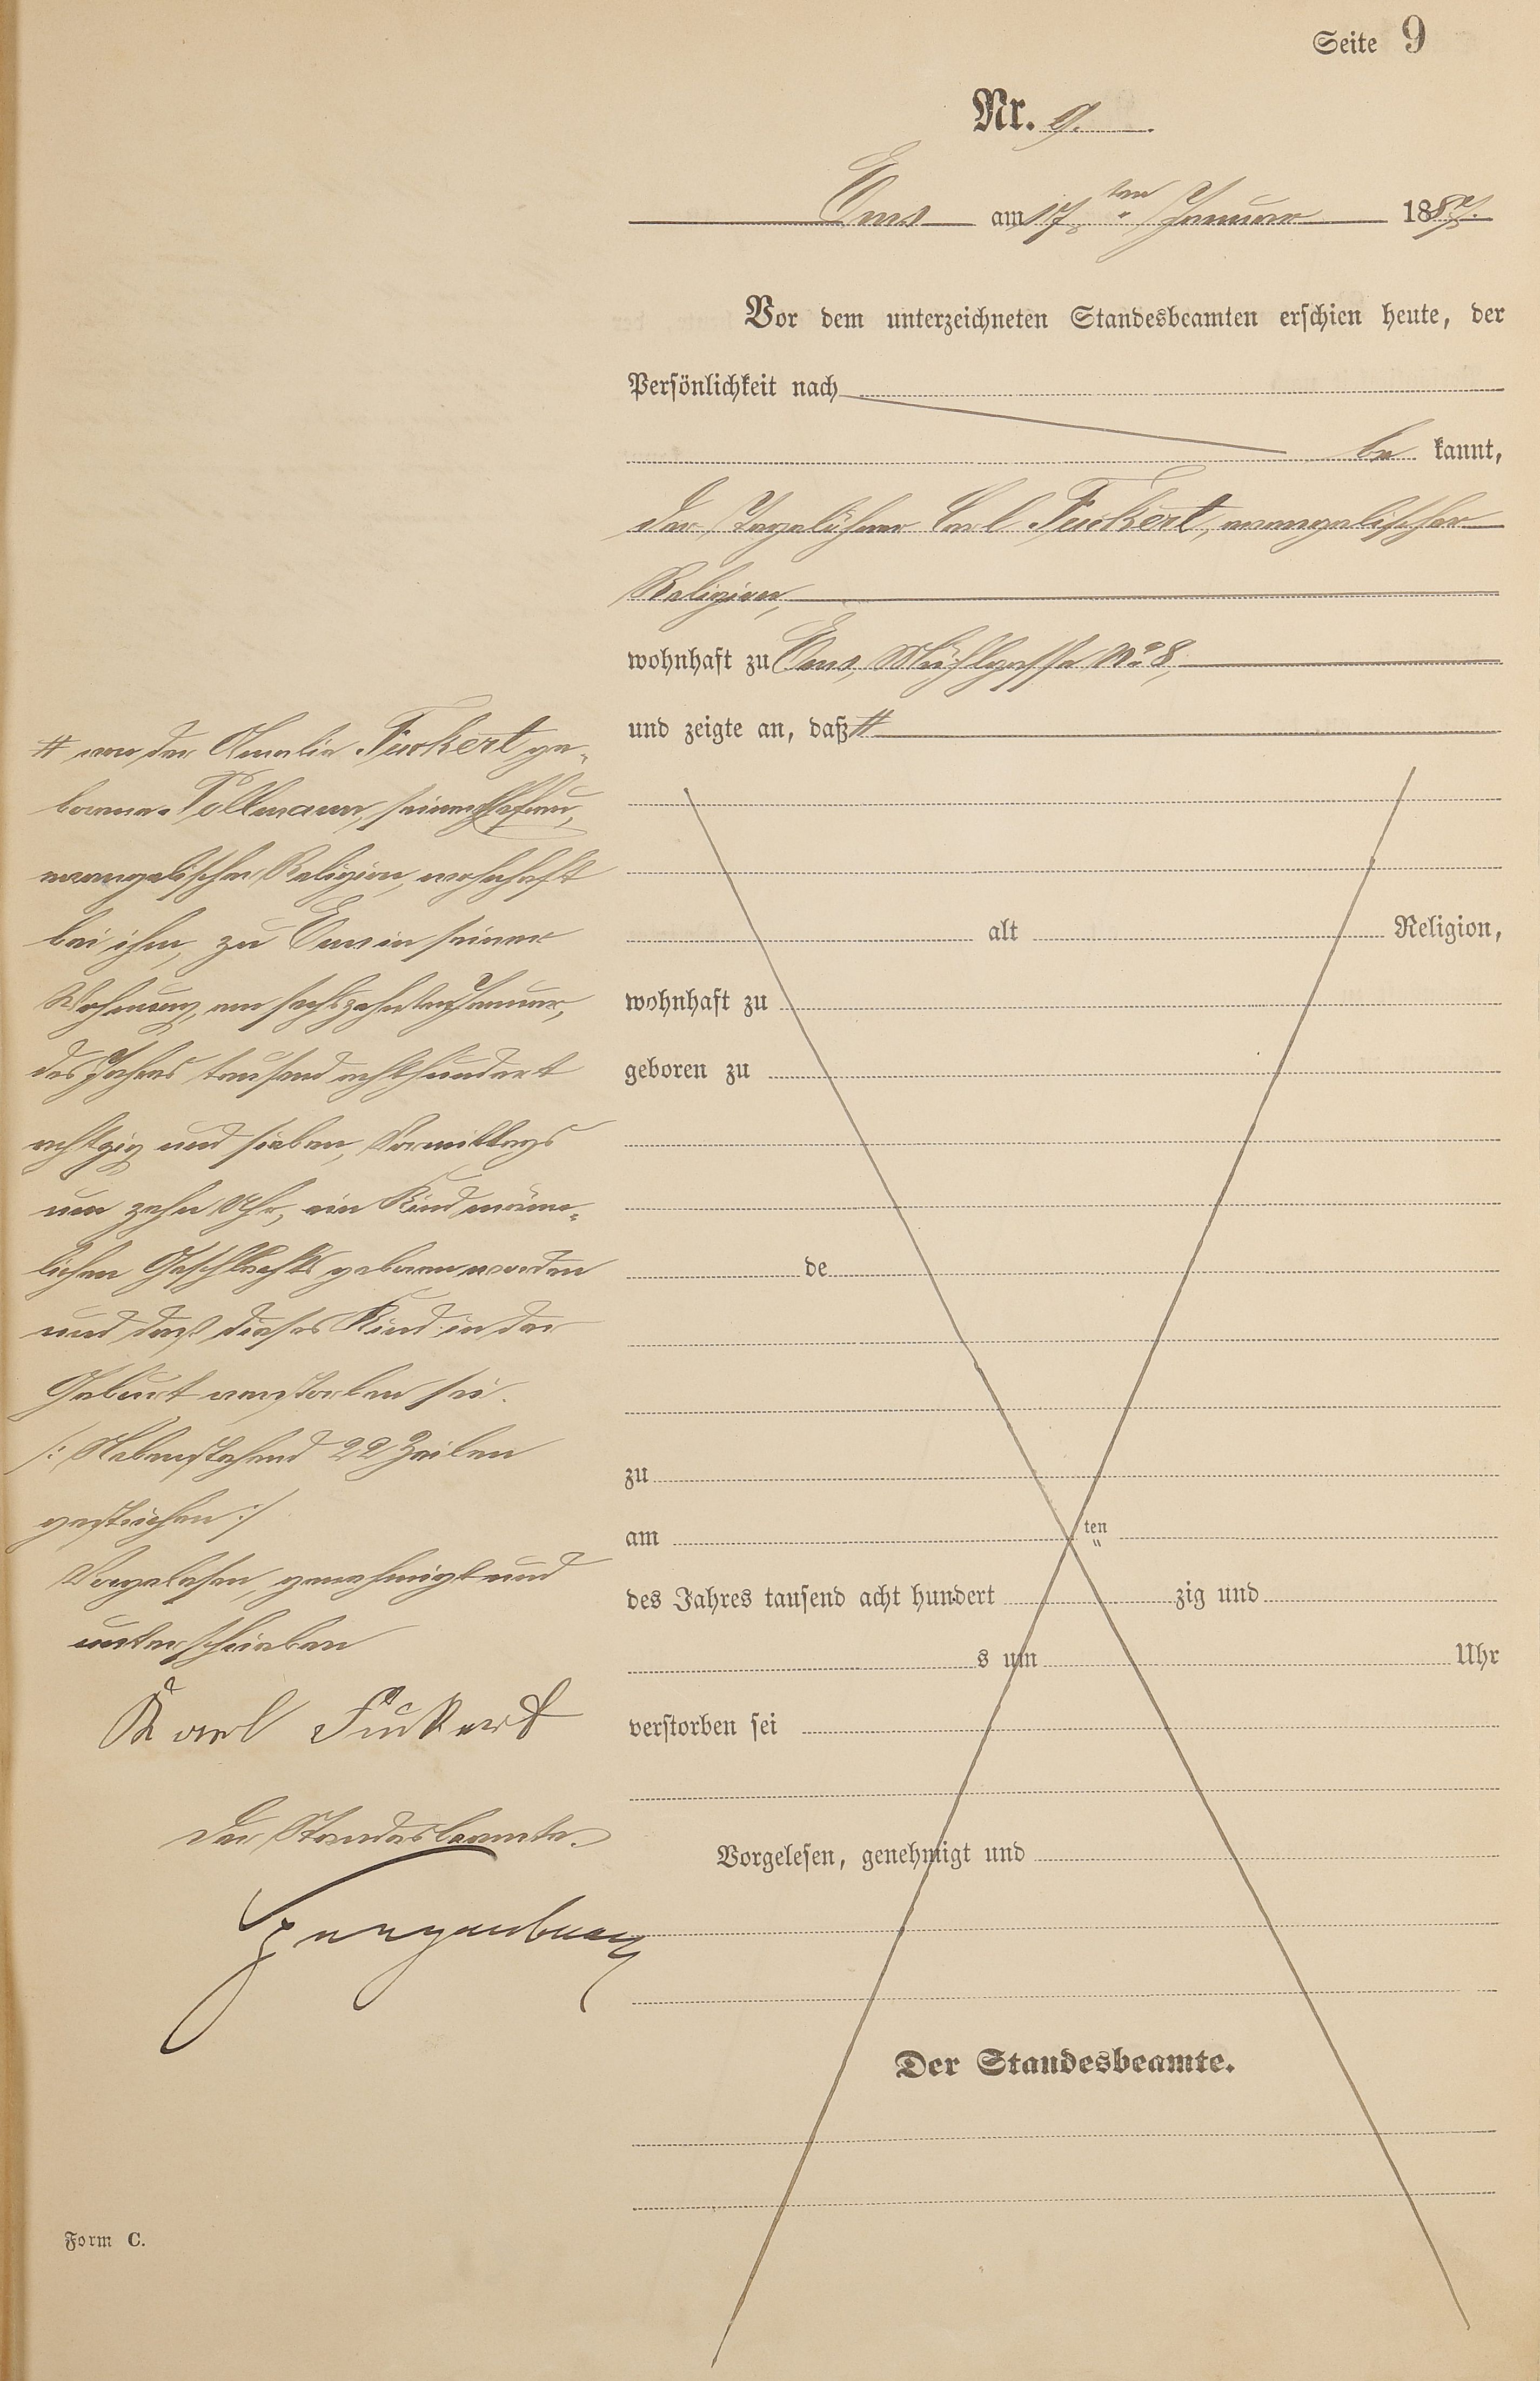 Seite 9
Nr. 9.
Ems am 17ten Januar 1887.
Vor dem unterzeichneten Standesbeamten erschien heute, der
Persönlichkeit nach
be kannt,
der Tagelöhner Carl Fuckert, evangelischer
Religion,
wohnhaft zu Ems, Mühlgasse No 8,
und zeigte an, daß #
# von der Amalie Fuckert ge-
borene Pollmann, seiner Ehefrau,
evangelischer Religion, wohnhaft
bei ihm, zu Ems in seiner
Wohnung, am sechszehnten Januar,
des Jahres tausend achthundert
achtzig und sieben, Vormittags
um zehn Uhr, ein Kind männ-
lichen Geschlechts geboren worden
und daß dieses Kind in der
Geburt verstorben sei.
/: Nebenstehend 22 Zeilen
gestrichen :/
Vorgelesen, genehmigt und
unterschrieben
Karl Fuckert
Der Standesbeamte.
alt Religion,
wohnhaft zu
geboren zu
de
zu
am ten
des Jahres tausend acht hundert zig und
s um Uhr
verstorben sei
Vorgelesen, genehmigt und
Der Standesbeamte.
Form C.